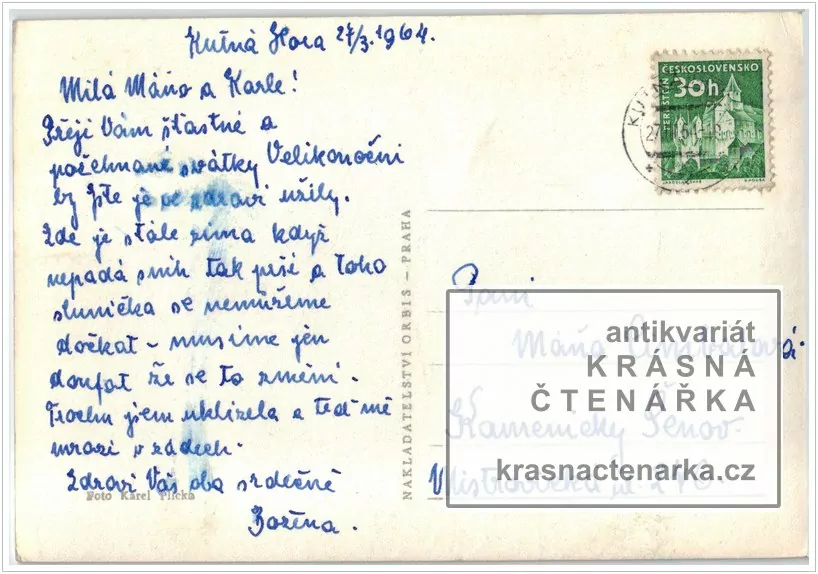 Kutná Hora 27/3.1964.
Milá Máňo a Karle!
Přeji Vám šťastné a
požehnané svátky Velikonoční
by jste je ve zdraví užily.
Zde je stále zima když
nepadá sníh tak prší a toho
sluníčka se nemůžeme
dočkat - musíme jen
doufat že se to změní.
Trochu jsem uklízela a teď mě
mrazí v zádech.
Zdraví Vás oba srdečně
Božena.
Foto Karel Plicka
NAKLADATELSTVÍ ORBIS - PRAHA
ČESKOSLOVENSKO
30h
Paní
Máňa
Kamenický Šenov
antikvariát
KRÁSNÁ
ČTENÁŘKA
krasnactenarka.cz